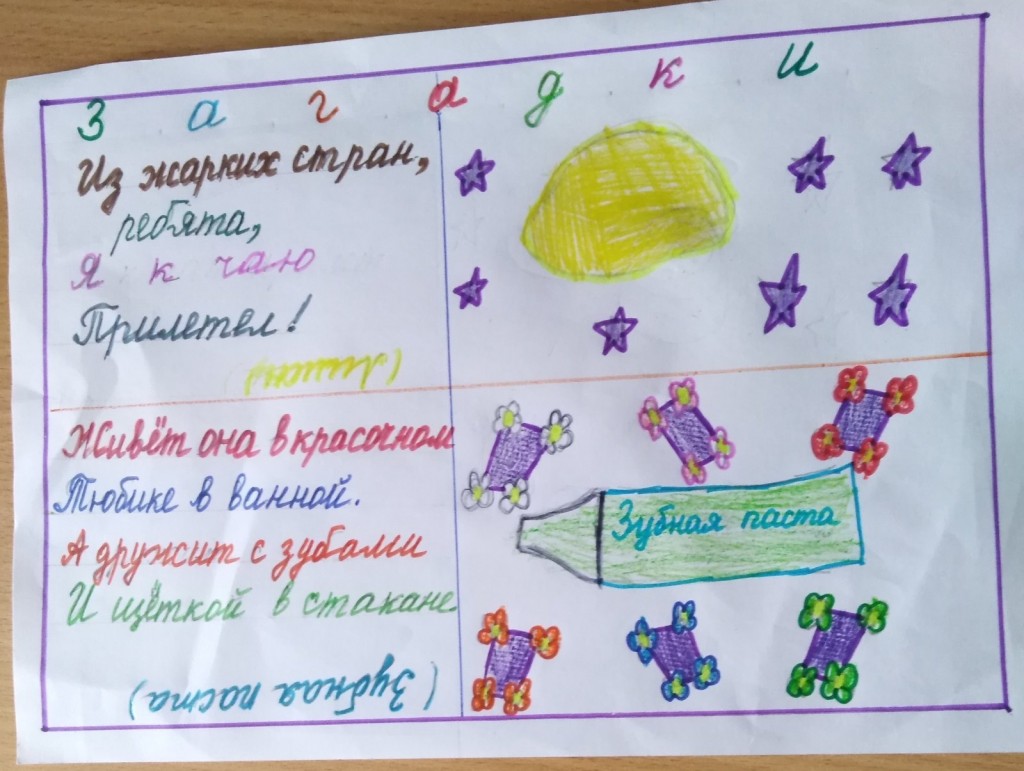 Загадки
Из жарких стран,
ребята,
Я к чаю
Прилетел!
(Лимон)
Живёт она в красочном
Тюбике в ванной.
А дружит с зубами
И щёткой в стакане
(Зубная паста)
Зубная паста